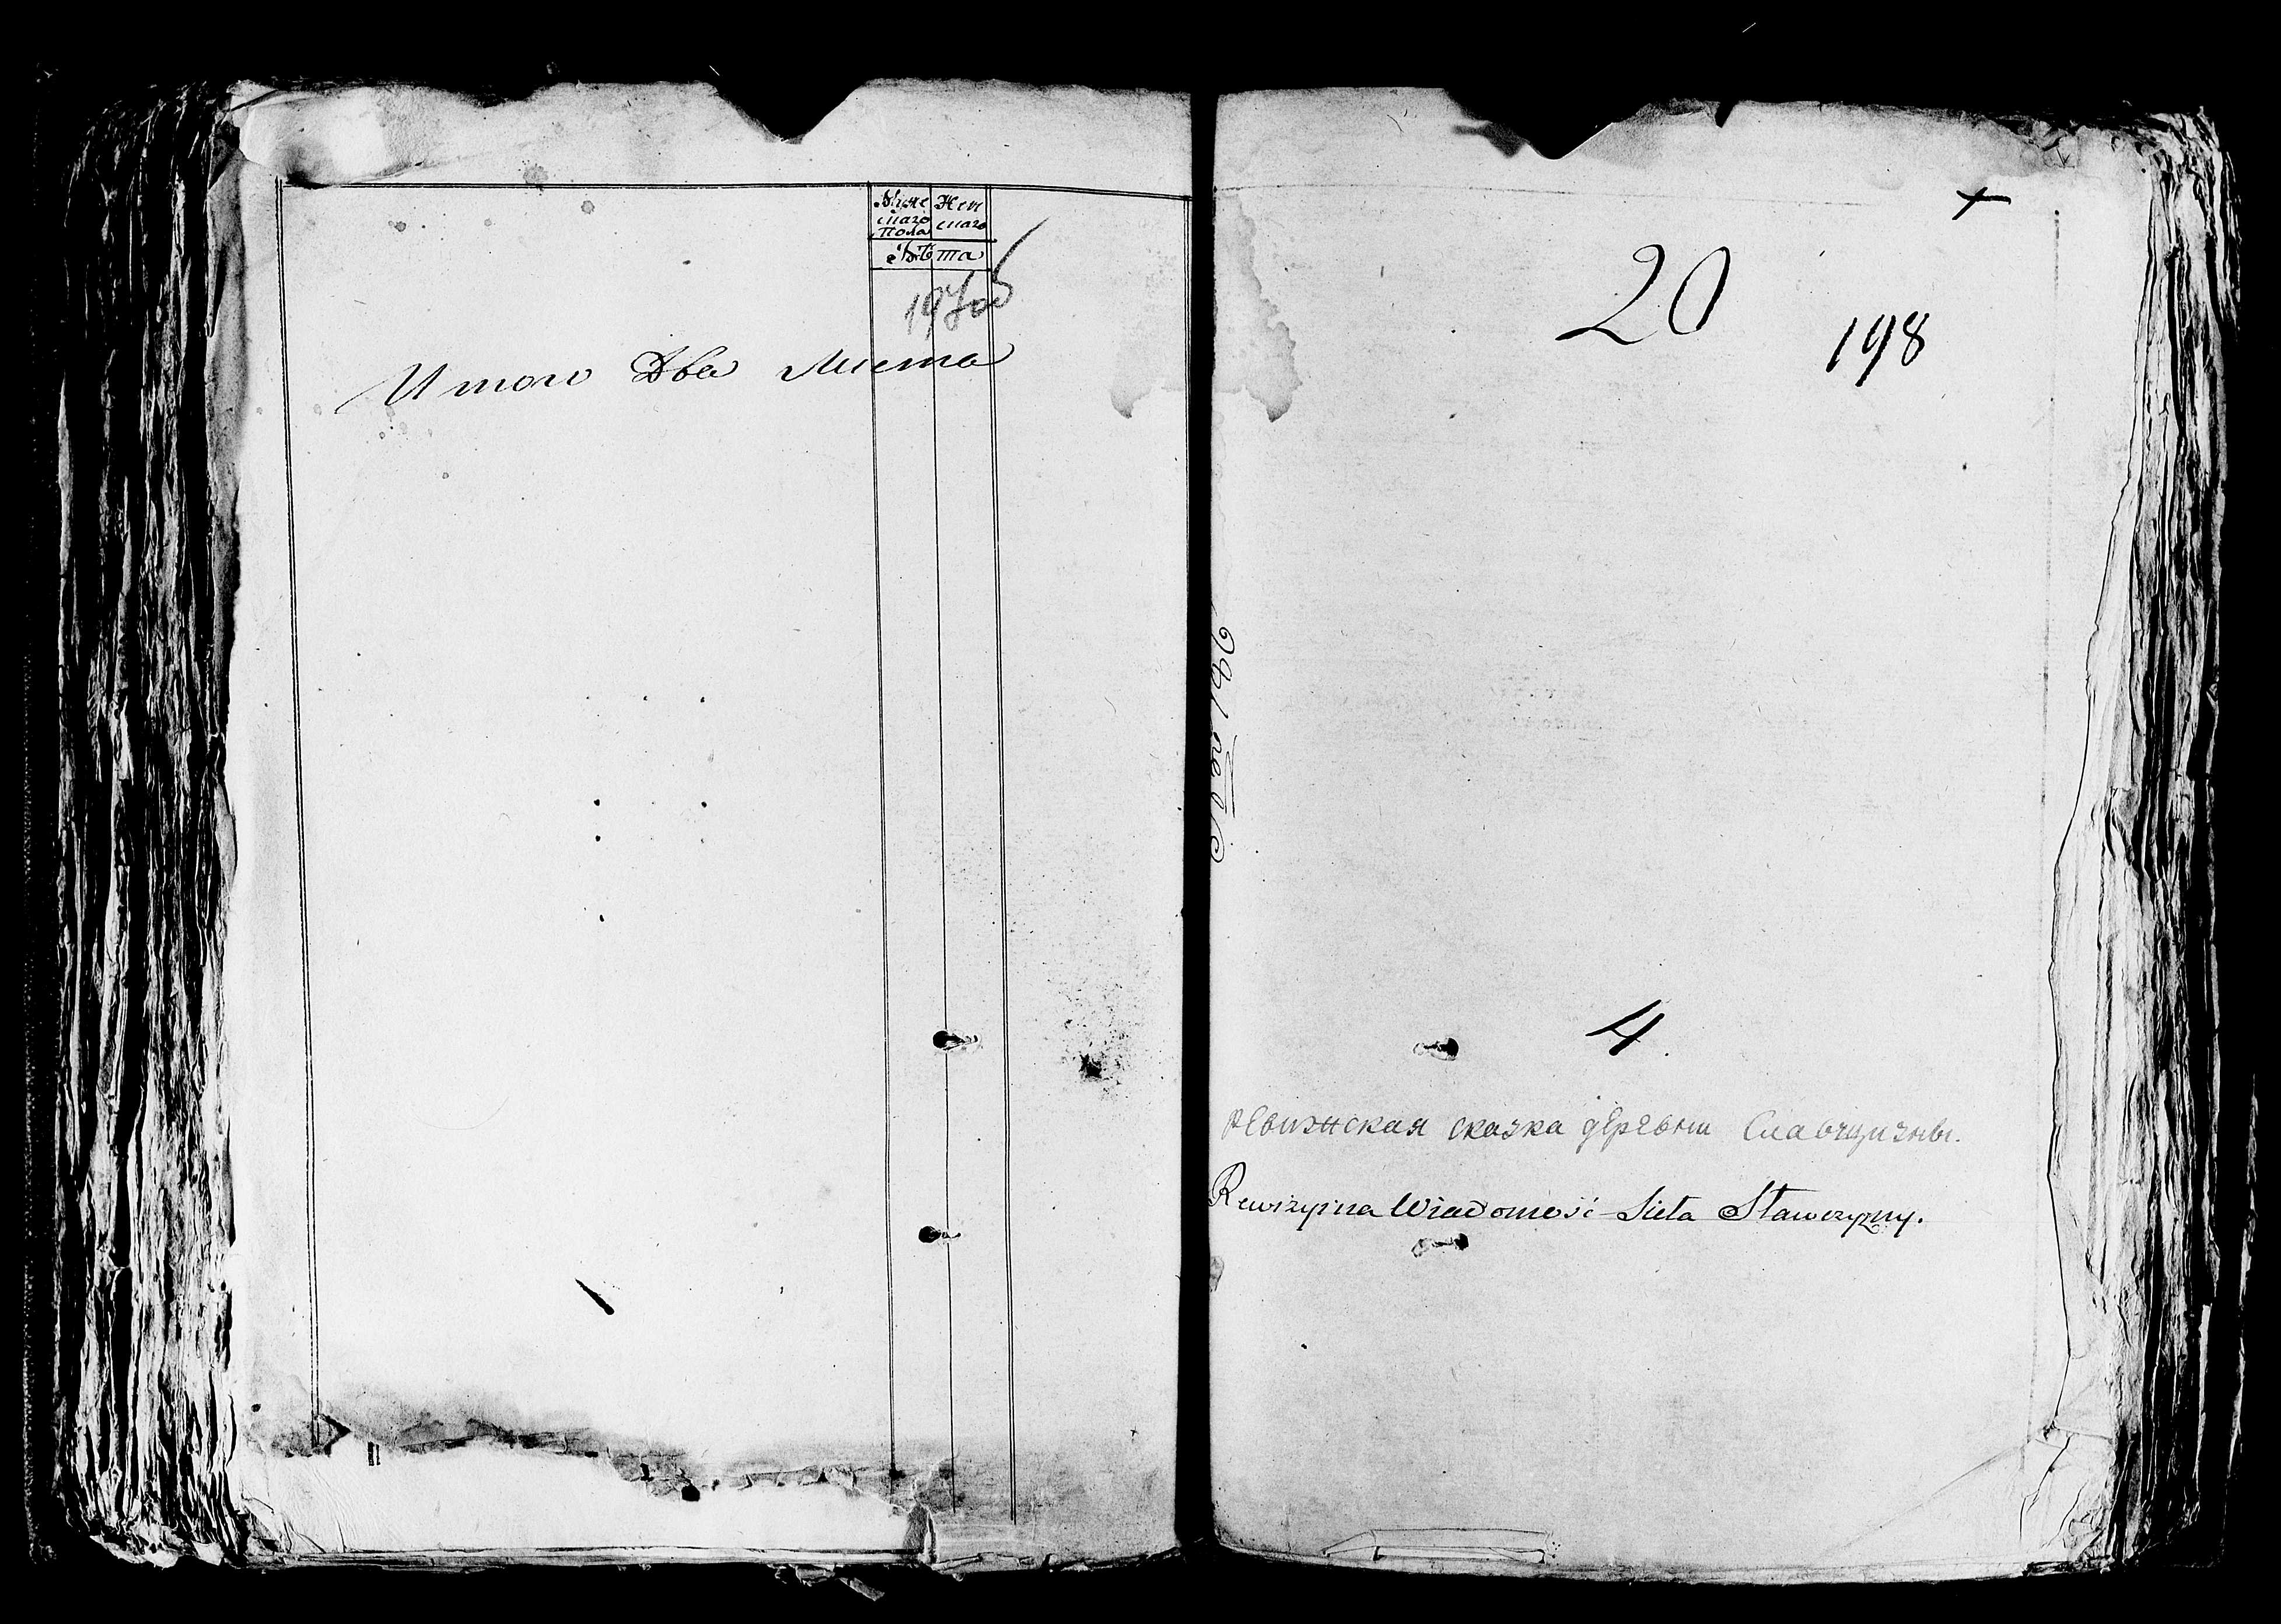 Муже Жен
скаго скаго
Пола
Лѣта
197об
Итого Два Листа
20
198
4
Ревизская сказка деревни Славчизны.
Rewizyina Wiadomość Sieła Sławczyzny.